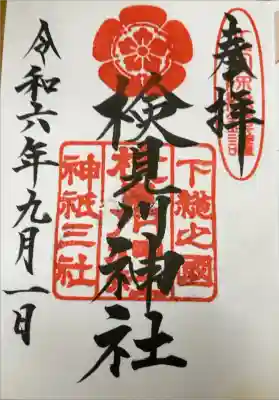 奉拝
下総之國
検見川神社
神祇三社
令和六年九月一日